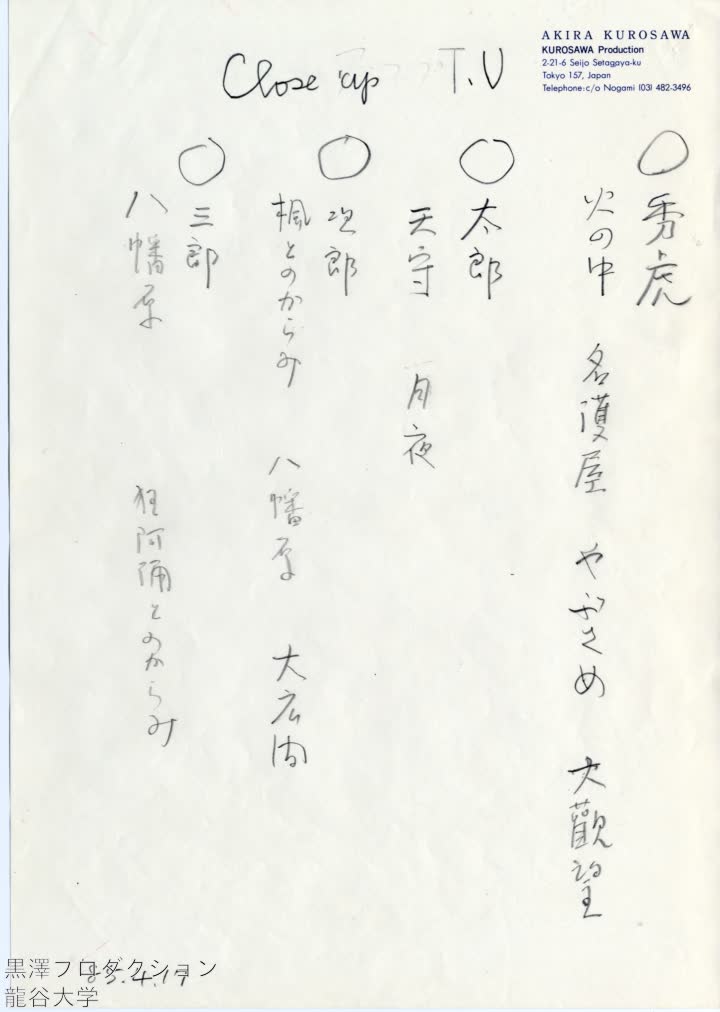 AKIRA KUROSAWA
KUROSAWA Production
2-21-6 Seijo Setagaya-ku
Tokyo 157, Japan
Telephone: c/o Nogami (03) 482-3496
Close up T.V
○秀虎
火の中 名護屋 やぶさめ 大観望
○太郎
天守 月夜
○次郎
楓とのからみ 八幡原 大広間
○三郎
八幡原 狂阿弥とのからみ
85.4.17
黒澤プロダクション
龍谷大学